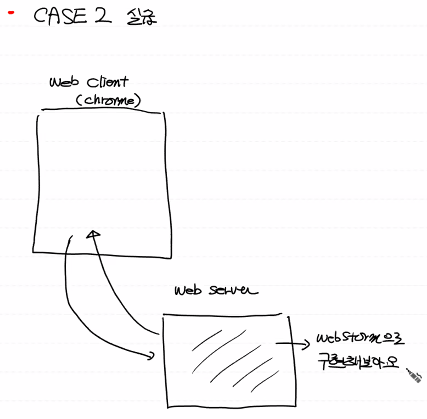 - CASE 2 실습
Web Client
(chrome)
Web Server
WebStorm으로
구현해보아요